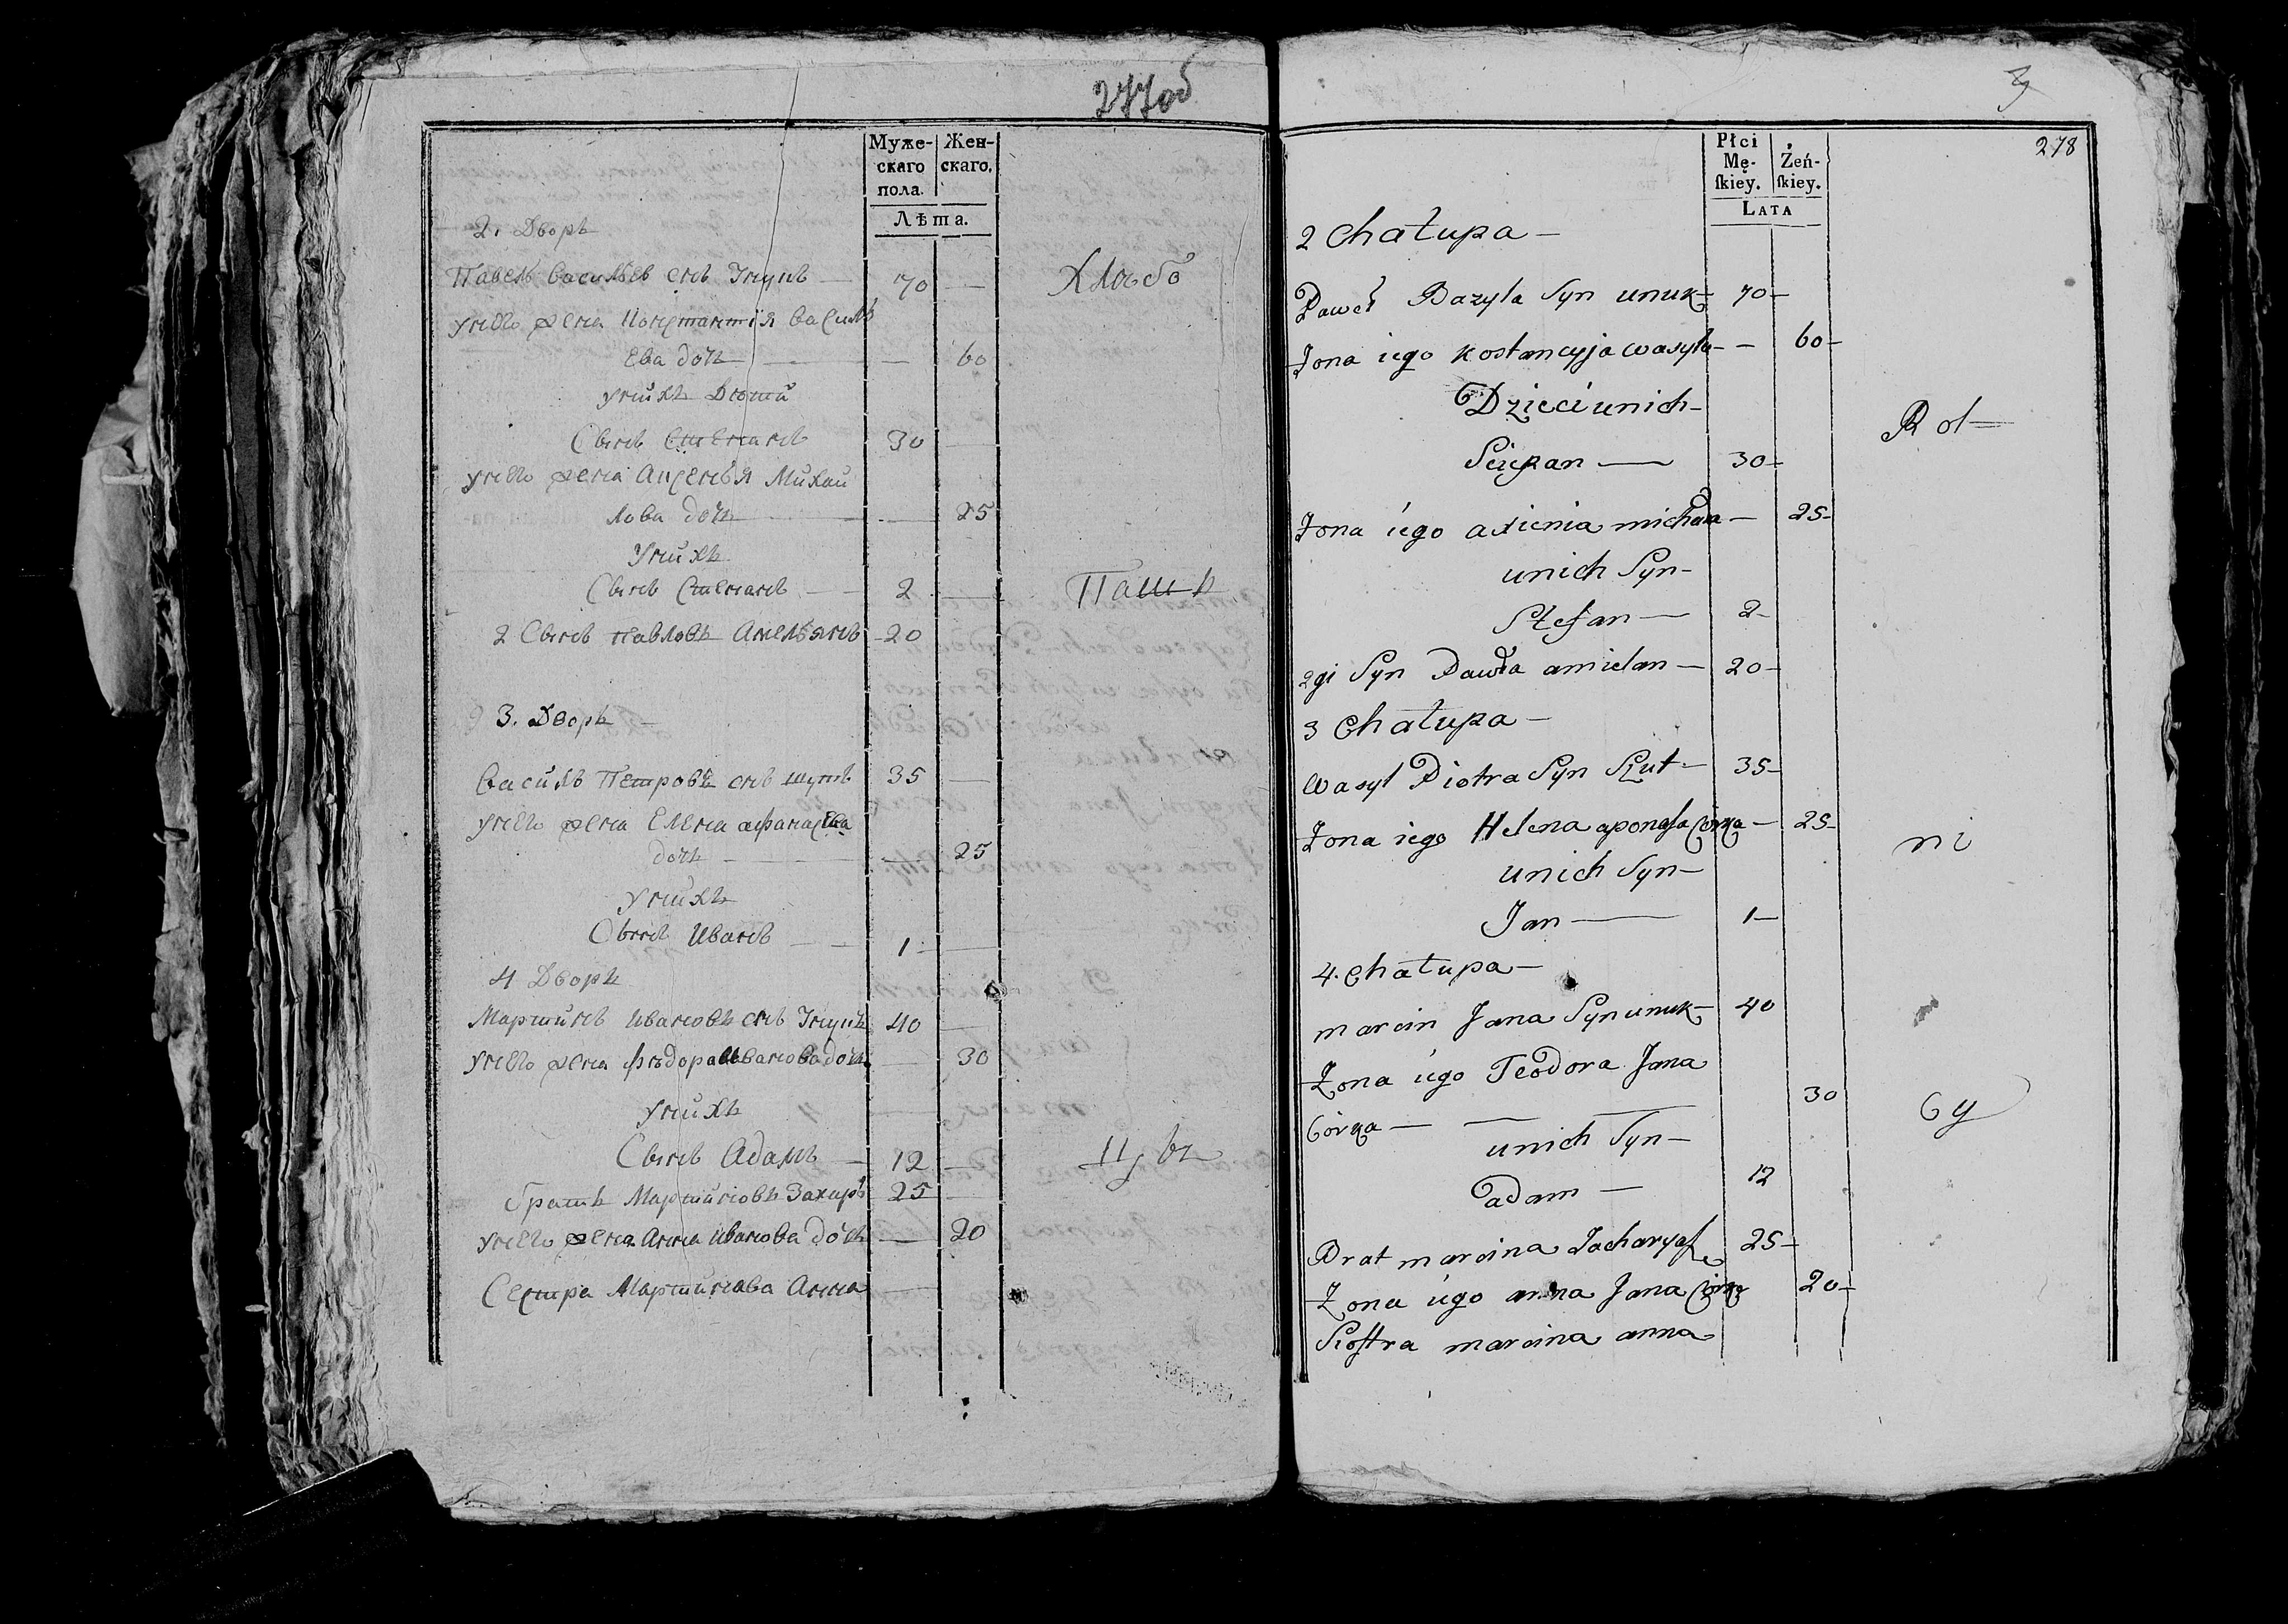 277об
Муже-
скаго
пола.
Жен-
скаго.
Лѣта.
2. Дворъ
Павелъ Васильев снъ Унукъ — 70 —
Унево жена Константія Василь
Ева дочь — — 60
Унихъ Дѣти
Сынъ Степанъ 30 —
Унево жена Аксенья Михай
лова дочь — — 25
Унихъ
Сынъ Степанъ — 2 —
2 Сынъ Павловъ Амельянъ 20
3. Дворъ —
Василь Петровъ снъ шутъ 35 —
Унево жена Елена афанасева
дочь — — 25
Унихъ
Сынъ Иванъ — 1 —
4 Дворъ
Мартинъ Ивановъ снъ Унукъ 40 —
Унево жена Фѣдора Иванова дочь — 30
Унихъ
Сынъ Адамъ — 12 —
братъ Мартиновъ Захаръ 25 —
Унево жена Анна Иванова дочь — 20
Сестра Мартинава Анна —
Хлѣбо
Паш
цы
3
278
Płci
Mę-
ſkiey.
Żeń-
ſkiey.
LATA
2 Chałupa —
Paweł Bazyla Syn unuk — 70 —
Zona iego kostancyja wasyla — — 60 —
Dzieci unich —
Sciepan — 30 —
Zona iego axienia michała — 25 —
unich Syn —
Stefan — 2 —
2gi Syn Pawła amielan — 20 —
3 Chałupa —
wasyl Piotra Syn Szut — 35 —
Zona iego Helena aponasa Córka — 25 —
unich Syn —
Jan — 1 —
4. Chałupa —
marcin Jana Syn unuk — 40
Zona iego Teodora Jana
Córka — — 30
unich Syn —
adam — 12
Brat marcina Zacharyasz 25 —
Zona iego anna Jana Córka 20 —
Siostra marcina anna
Rol —
ni
cy